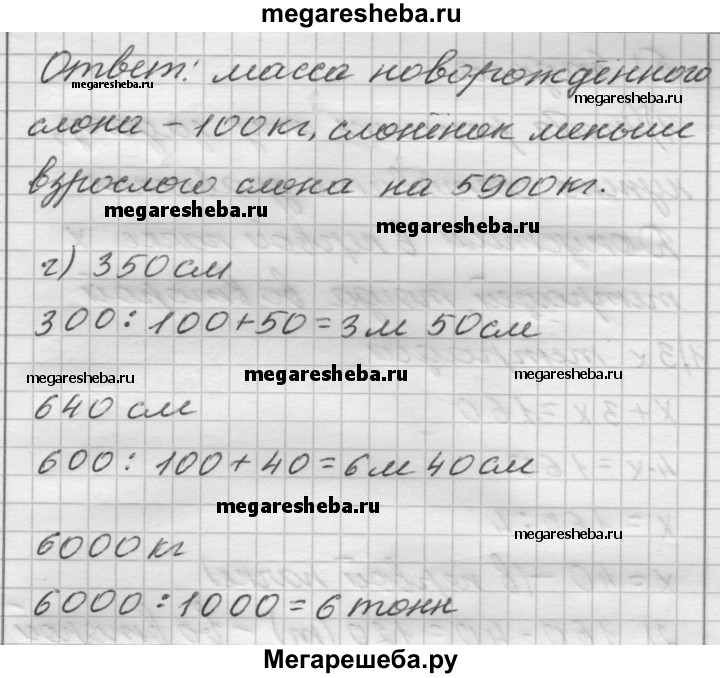 megaresheba.ru
Ответ: масса новорождённого
megaresheba.ru
megaresheba.ru
слона - 100 кг, слонёнок меньше
взрослого слона на 5900 кг.
megaresheba.ru
megaresheba.ru
г) 350 см
300 : 100 + 50 = 3 м 50 см
megaresheba.ru
megaresheba.ru
megaresheba.ru
640 см
600 : 100 + 40 = 6 м 40 см
megaresheba.ru
6000 кг
megaresheba.ru
6000 : 1000 = 6 тонн
Мегарешеба.ру